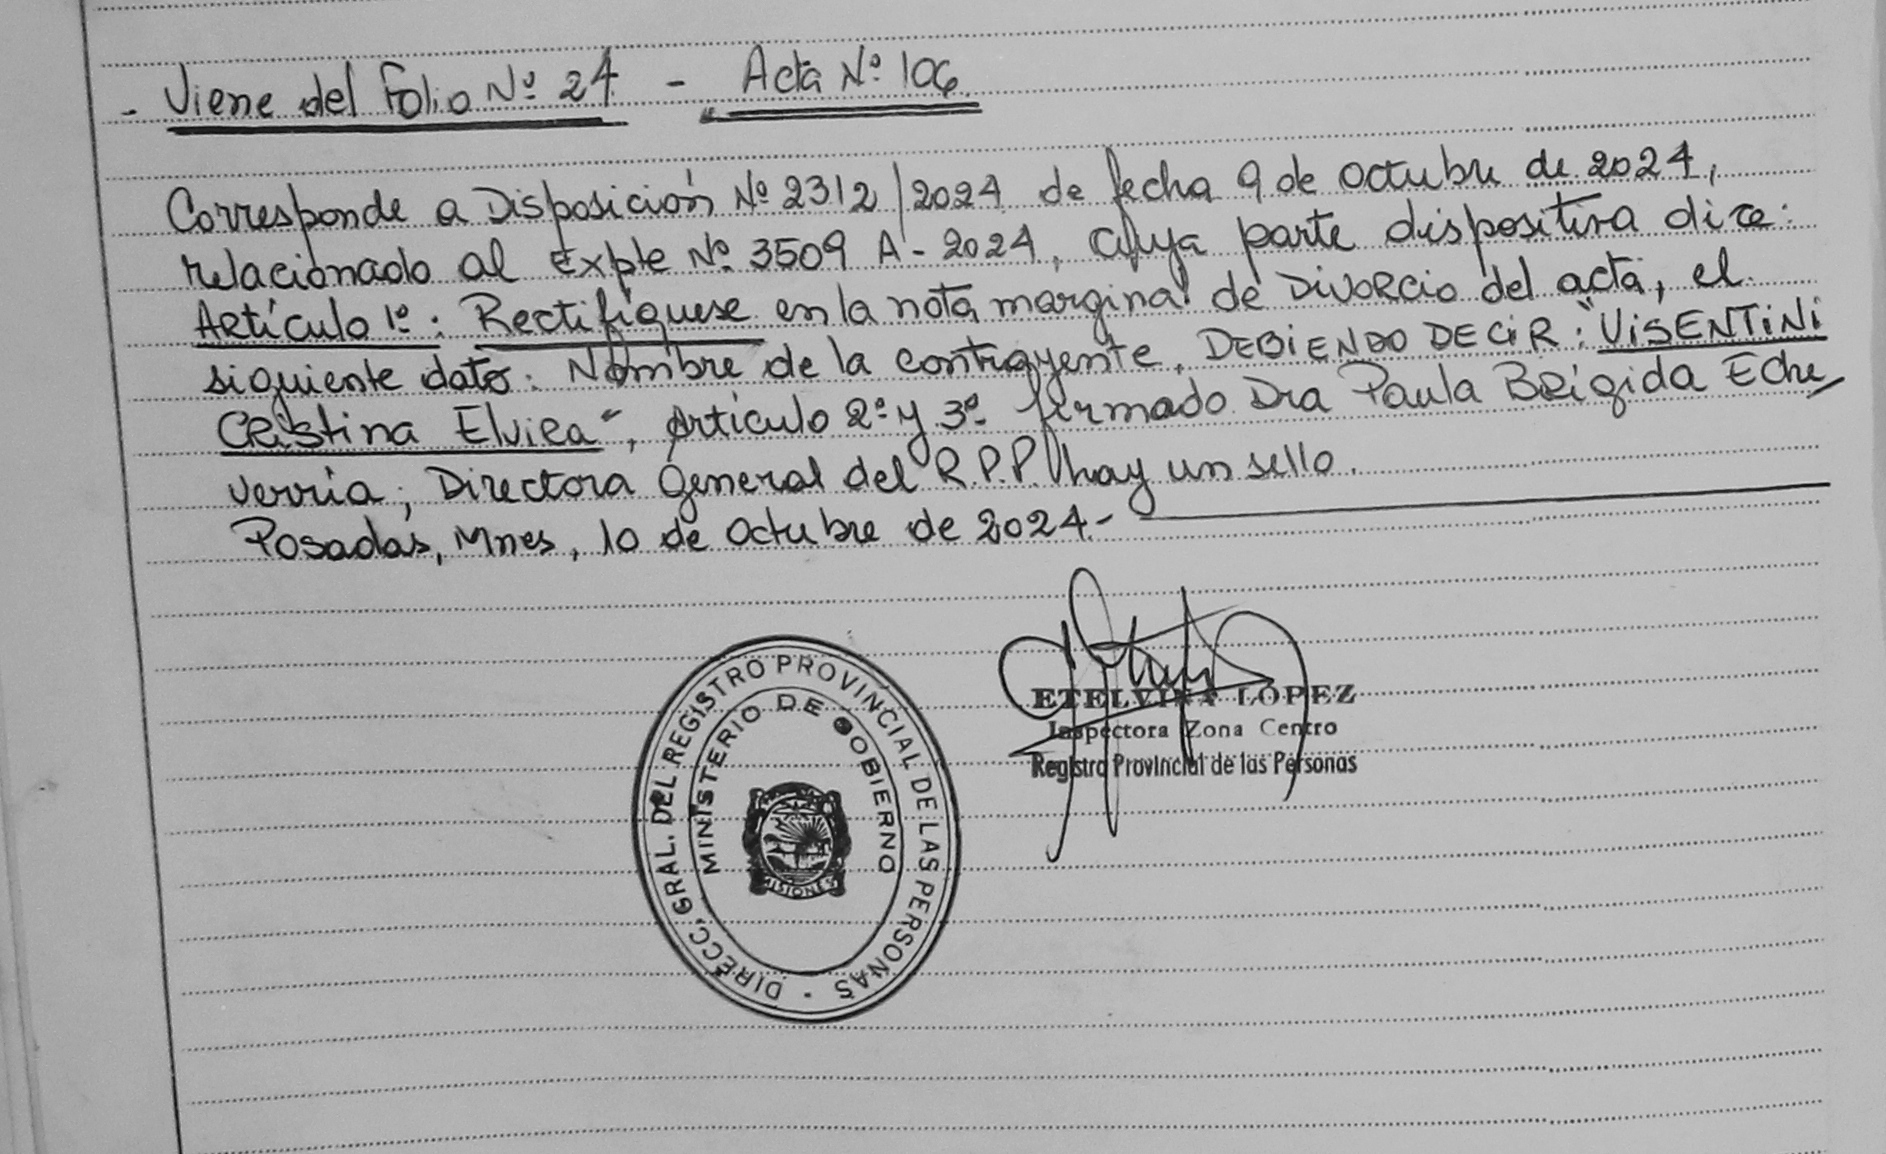 - Viene del Folio Nº 24 - Acta Nº 106.
Corresponde a Disposición Nº 2312/2024 de fecha 9 de octubre de 2024,
relacionado al Expte Nº 3509 A-2024, cuya parte dispositiva dice:
Artículo 1º: Rectifíquese en la nota marginal de Divorcio del acta, el
siguiente dato: Nombre de la contrayente, DEBIENDO DECIR: "VISENTINI
Cristina Elvira", Artículo 2º y 3º firmado Dra Paula Brígida Eche
verría, Directora General del R.P.P. hay un sello.
Posadas, Mnes, 10 de Octubre de 2024.-
DIRECC. GRAL. DEL REGISTRO PROVINCIAL DE LAS PERSONAS -
MINISTERIO DE GOBIERNO
MISIONES
ETELVINA LOPEZ
Inspectora Zona Centro
Registro Provincial de las Personas